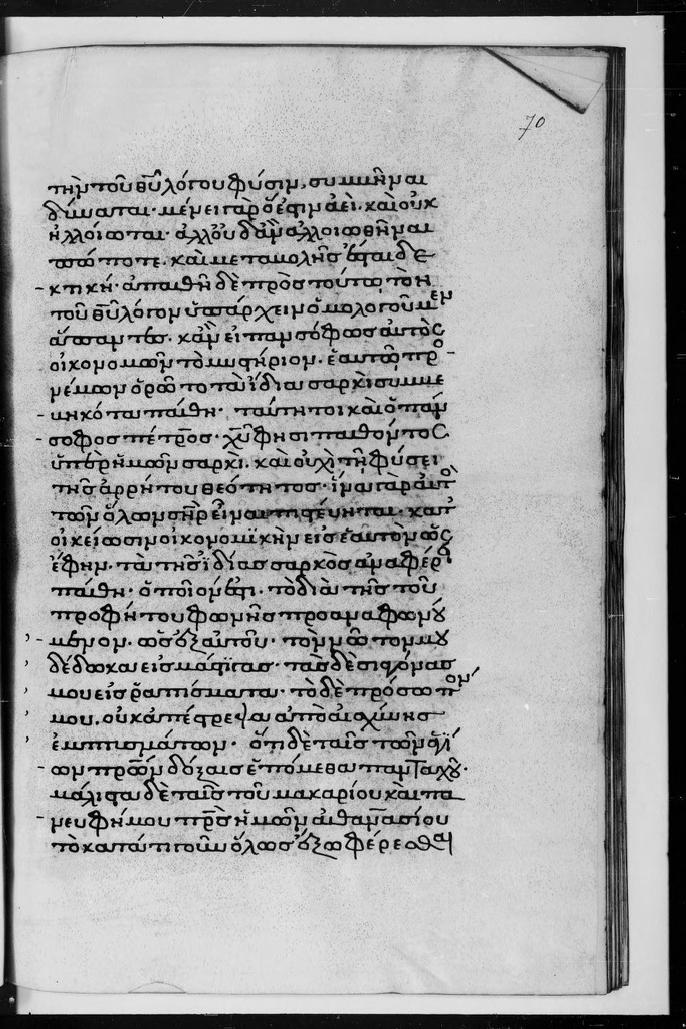 70
τὴν τοῦ θυ λόγου φύσιν, συμβῆναι
δύναται· μένει γὰρ ὅ ἐστιν ἀεί. καὶ οὐκ
ἠλλοίωται· ἀλλ' οὐδ' ἂν ἀλλοιωθῆναι
πώποτε. καὶ μεταβολῆς ἔσται δε
κτική· ἀπαθῆ δὲ πρὸς τούτω τὸν
τοῦ θυ λόγον ὑπάρχειν ὁμολογοῦμεν
ἅπαντες. κἂν εἰ πανσόφως αὐτὸς
οἰκονομῶν τὸ μυστήριον. ἑαυτῶ προ
νέμων ὁρῶτο τὰ ἰδία σαρκὶ συμβε
βηκότα πάθη· ταύτητοι καὶ ὁ πάν
σοφος πέτρος· χυ φησὶ παθόντος
ὑπὲρ ἡμῶν σαρκί. καὶ οὐχὶ τῆ φύσει
τῆς ἀρρήτου θεότητος· ἵνα γὰρ αὐτὸς
τῶν ὅλων σηρ εἶναι πιστεύηται. κατ'
οἰκείωσιν οἰκονομϊκὴν εἰς ἑαυτὸν ὡς
ἔφην. τὰ τῆς ϊδίας σαρκὸς ἀναφέρει
πάθη· ὁποῖόν ἐστι. τὸ διὰ τῆς τοῦ
προφήτου φωνῆς προαναφωνού
μενον. ὡς ἐξ αὐτοῦ· τὸν νῶτόν μου
δέδωκα εἰς μάστϊγας· τὰς δὲ σιαγόνας
μου εἰς ῥαπίσματα· τὸ δὲ πρόσωπον
μου. οὐκ ἀπέστρεψα ἀπὸ αἰσχύνης
ἐμπτυσμάτων· ὅτι δὲ ταῖς τῶν ἁγί
ων πρων δόξαις ἑπόμεθα πανταχοῦ.
μάλιστα δὲ ταῖς τοῦ μακαρίου καὶ πα
νευφήμου πρς ἡμῶν ἀθανασίου
τὸ κατά τι γοῦν ὅλως ἔξω φέρεσθαι